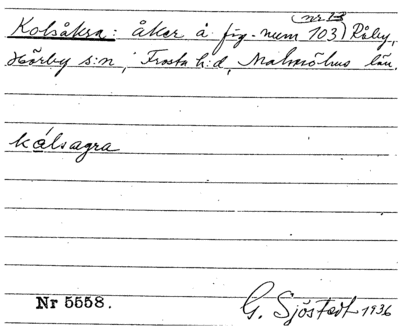 (nr. 13
Kolsåkra: åker å fig. num 103) Råby,
Hörby s:n, Frosta h:d, Malmöhus län.
kålsagra
Nr 5558.
G. Sjöstedt 1936